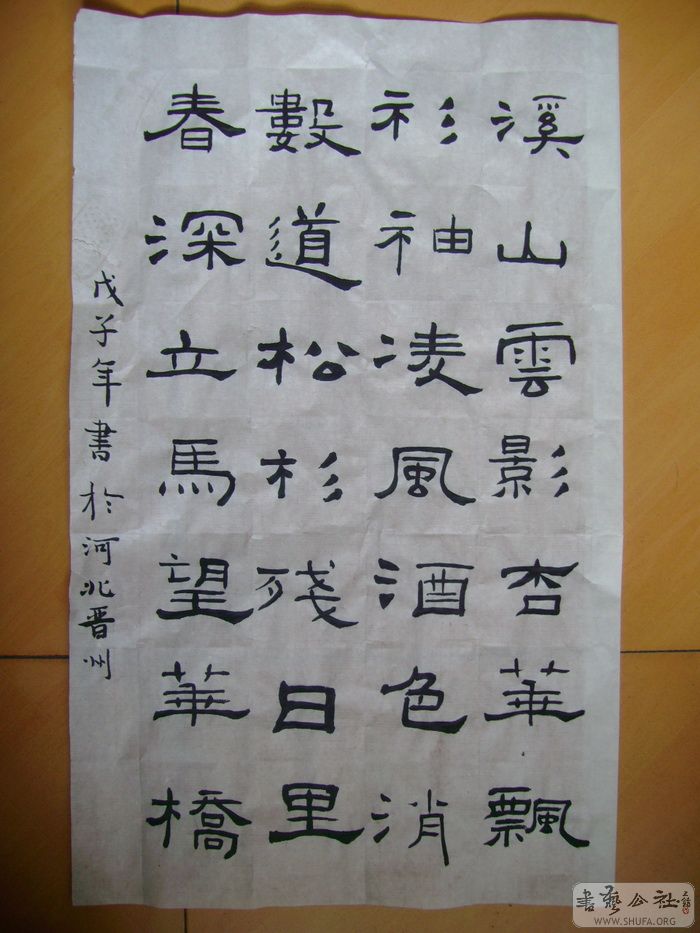 溪山雲影杏華飄
衫袖凌風酒色消
數道松杉殘日里
春深立馬望華橋
戊子年書於河北晋州
書藝公社
WWW.SHUFA.ORG